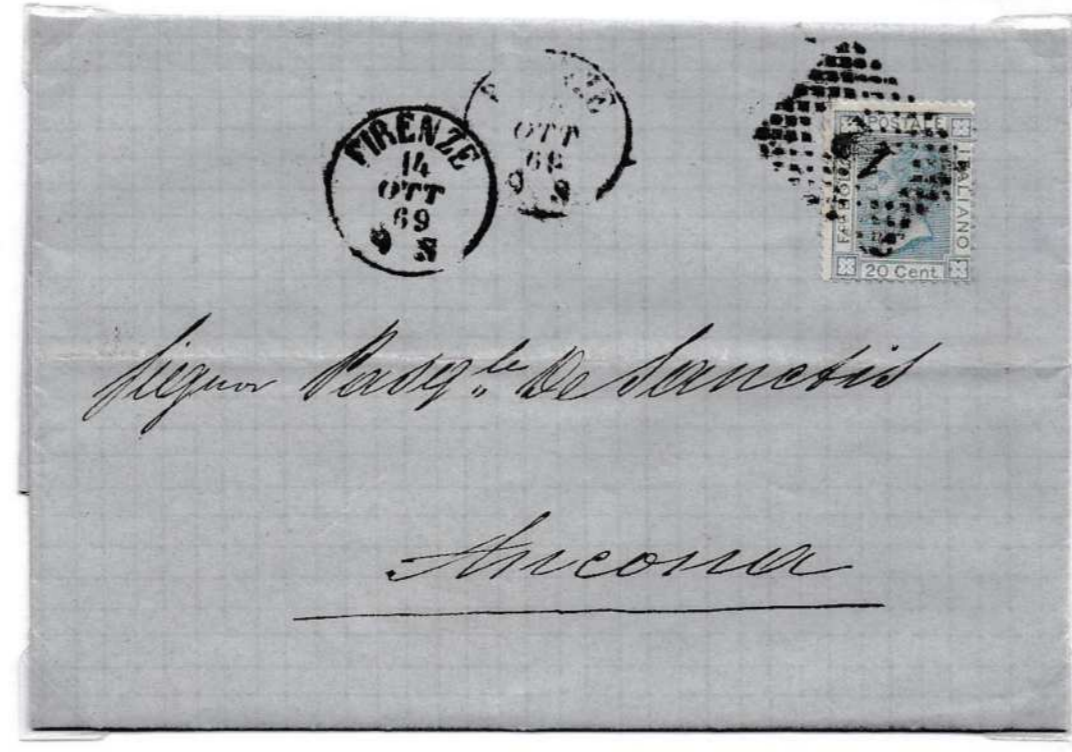 FIRENZE
14
OTT
69
9 S
OTT
69
9 S
POSTALE
ITALIANO
20 Cent.
1
Signor Pasq.le De Sanctis
Ancona